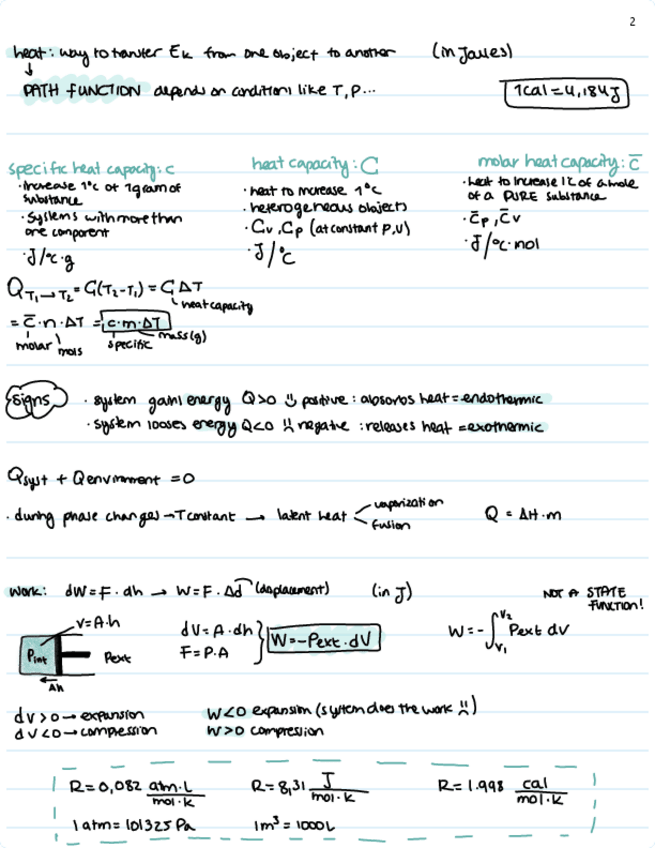 2
heat: way to transfer Ek from one object to another (in Joules)
↓
PATH FUNCTION depends on conditions like T, P...
1cal = 4,184J
specific heat capacity: c
· increase 1°c of 1gram of substance
· Systems with more than one component
· J/°c·g
heat capacity: C
· heat to increase 1°C
· heterogeneous objects
· Cv, Cp (at constant P,V)
· J/°C
molar heat capacity: c̅
· heat to increase 1°C of a mole of a PURE substance
· c̅p, c̅v
· J/°C·mol
Q T1→T2 = C(T2-T1) = C ΔT
heat capacity
= c̅·n·ΔT = c·m·ΔT
molar mols specific mass(g)
Signs
· system gains energy Q>0 positive: absorbs heat = endothermic
· system looses energy Q<0 negative: releases heat = exothermic
Qsyst + Qenvironment = 0
· during phase changes → T constant → latent heat < vaporization
fusion
Q = ΔH·m
Work: dW = F·dh → W = F·Δd (displacement) (in J)
NOT A STATE FUNCTION!
V=A·h
Pint Pext
Δh
dV = A·dh
F = P·A
W = -Pext·dV
W = -∫V1 V2 Pext dV
dV>0 → expansion
dV<0 → compression
W<0 expansion (system does the work)
W>0 compression
R = 0,082 atm·L / mol·K
R = 8,31 J / mol·K
R = 1.998 cal / mol·K
1 atm = 101325 Pa
1m³ = 1000L